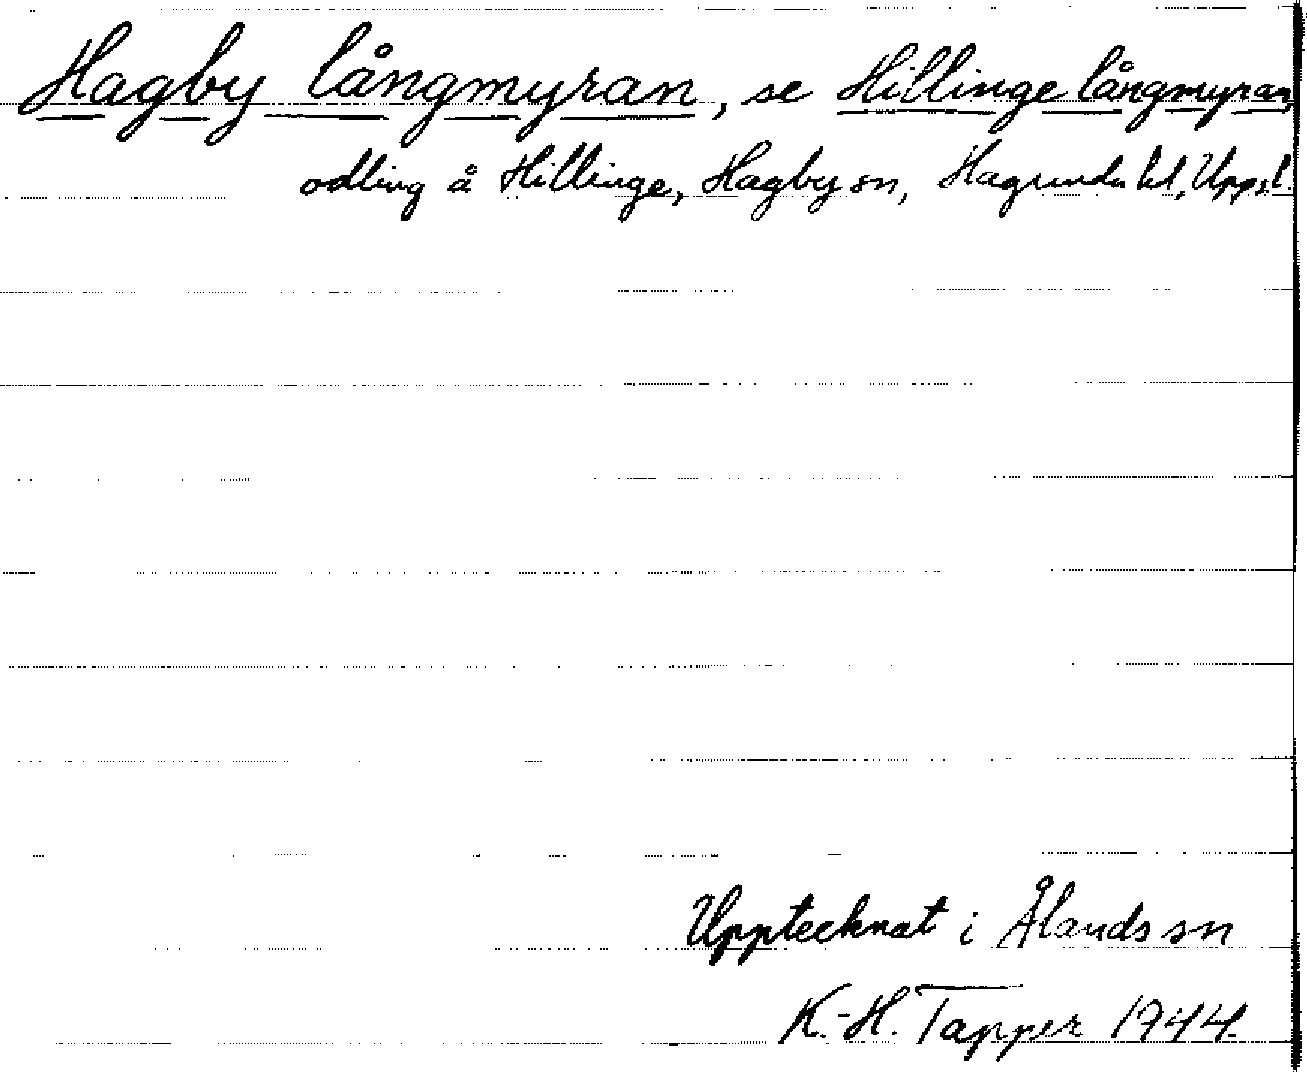 Hagby långmyran, se Hillinge långmyran,
odling å Hillinge, Hagby sn, Hagunda hd, Uppl.
Upptecknat i Ålands sn
K.-H. Tapper 1944.